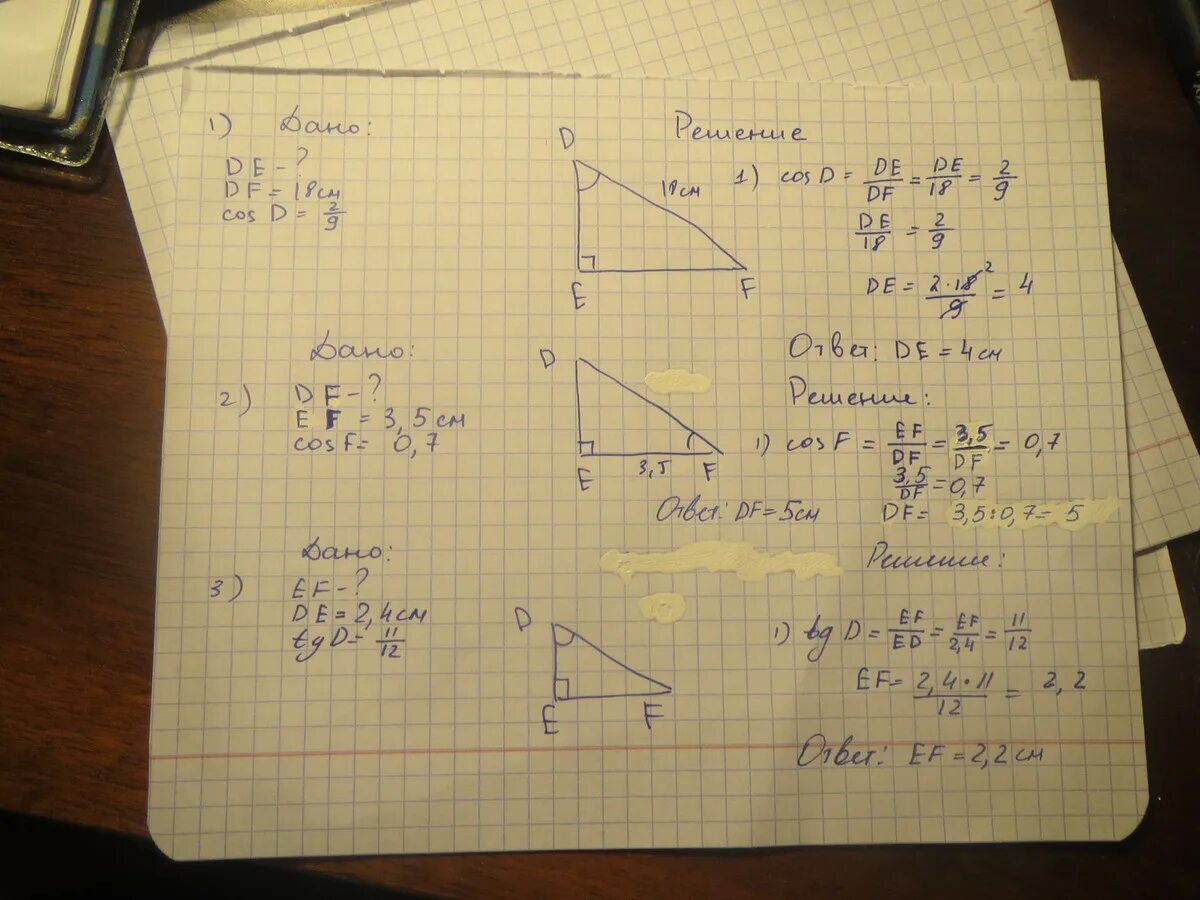 1) Дано:
DE - ?
DF = 18 см
cos D = 2/9
D
18 см
E
F
Решение
1) cos D = DE/DF = DE/18 = 2/9
DE/18 = 2/9
DE = 2·18/9 2 = 4
Ответ: DE = 4 см
Дано:
2) DF - ?
EF = 3,5 см
cos F = 0,7
D
E
3,5
F
Решение:
1) cos F = EF/DF = 3,5/DF = 0,7
3,5/DF = 0,7
DF = 3,5:0,7 = 5
Ответ: DF = 5 см
Дано:
3) EF - ?
DE = 2,4 см
tg D = 11/12
D
E
F
Решение:
1) tg D = EF/ED = EF/2,4 = 11/12
EF = 2,4·11/12 = 2,2
Ответ: EF = 2,2 см